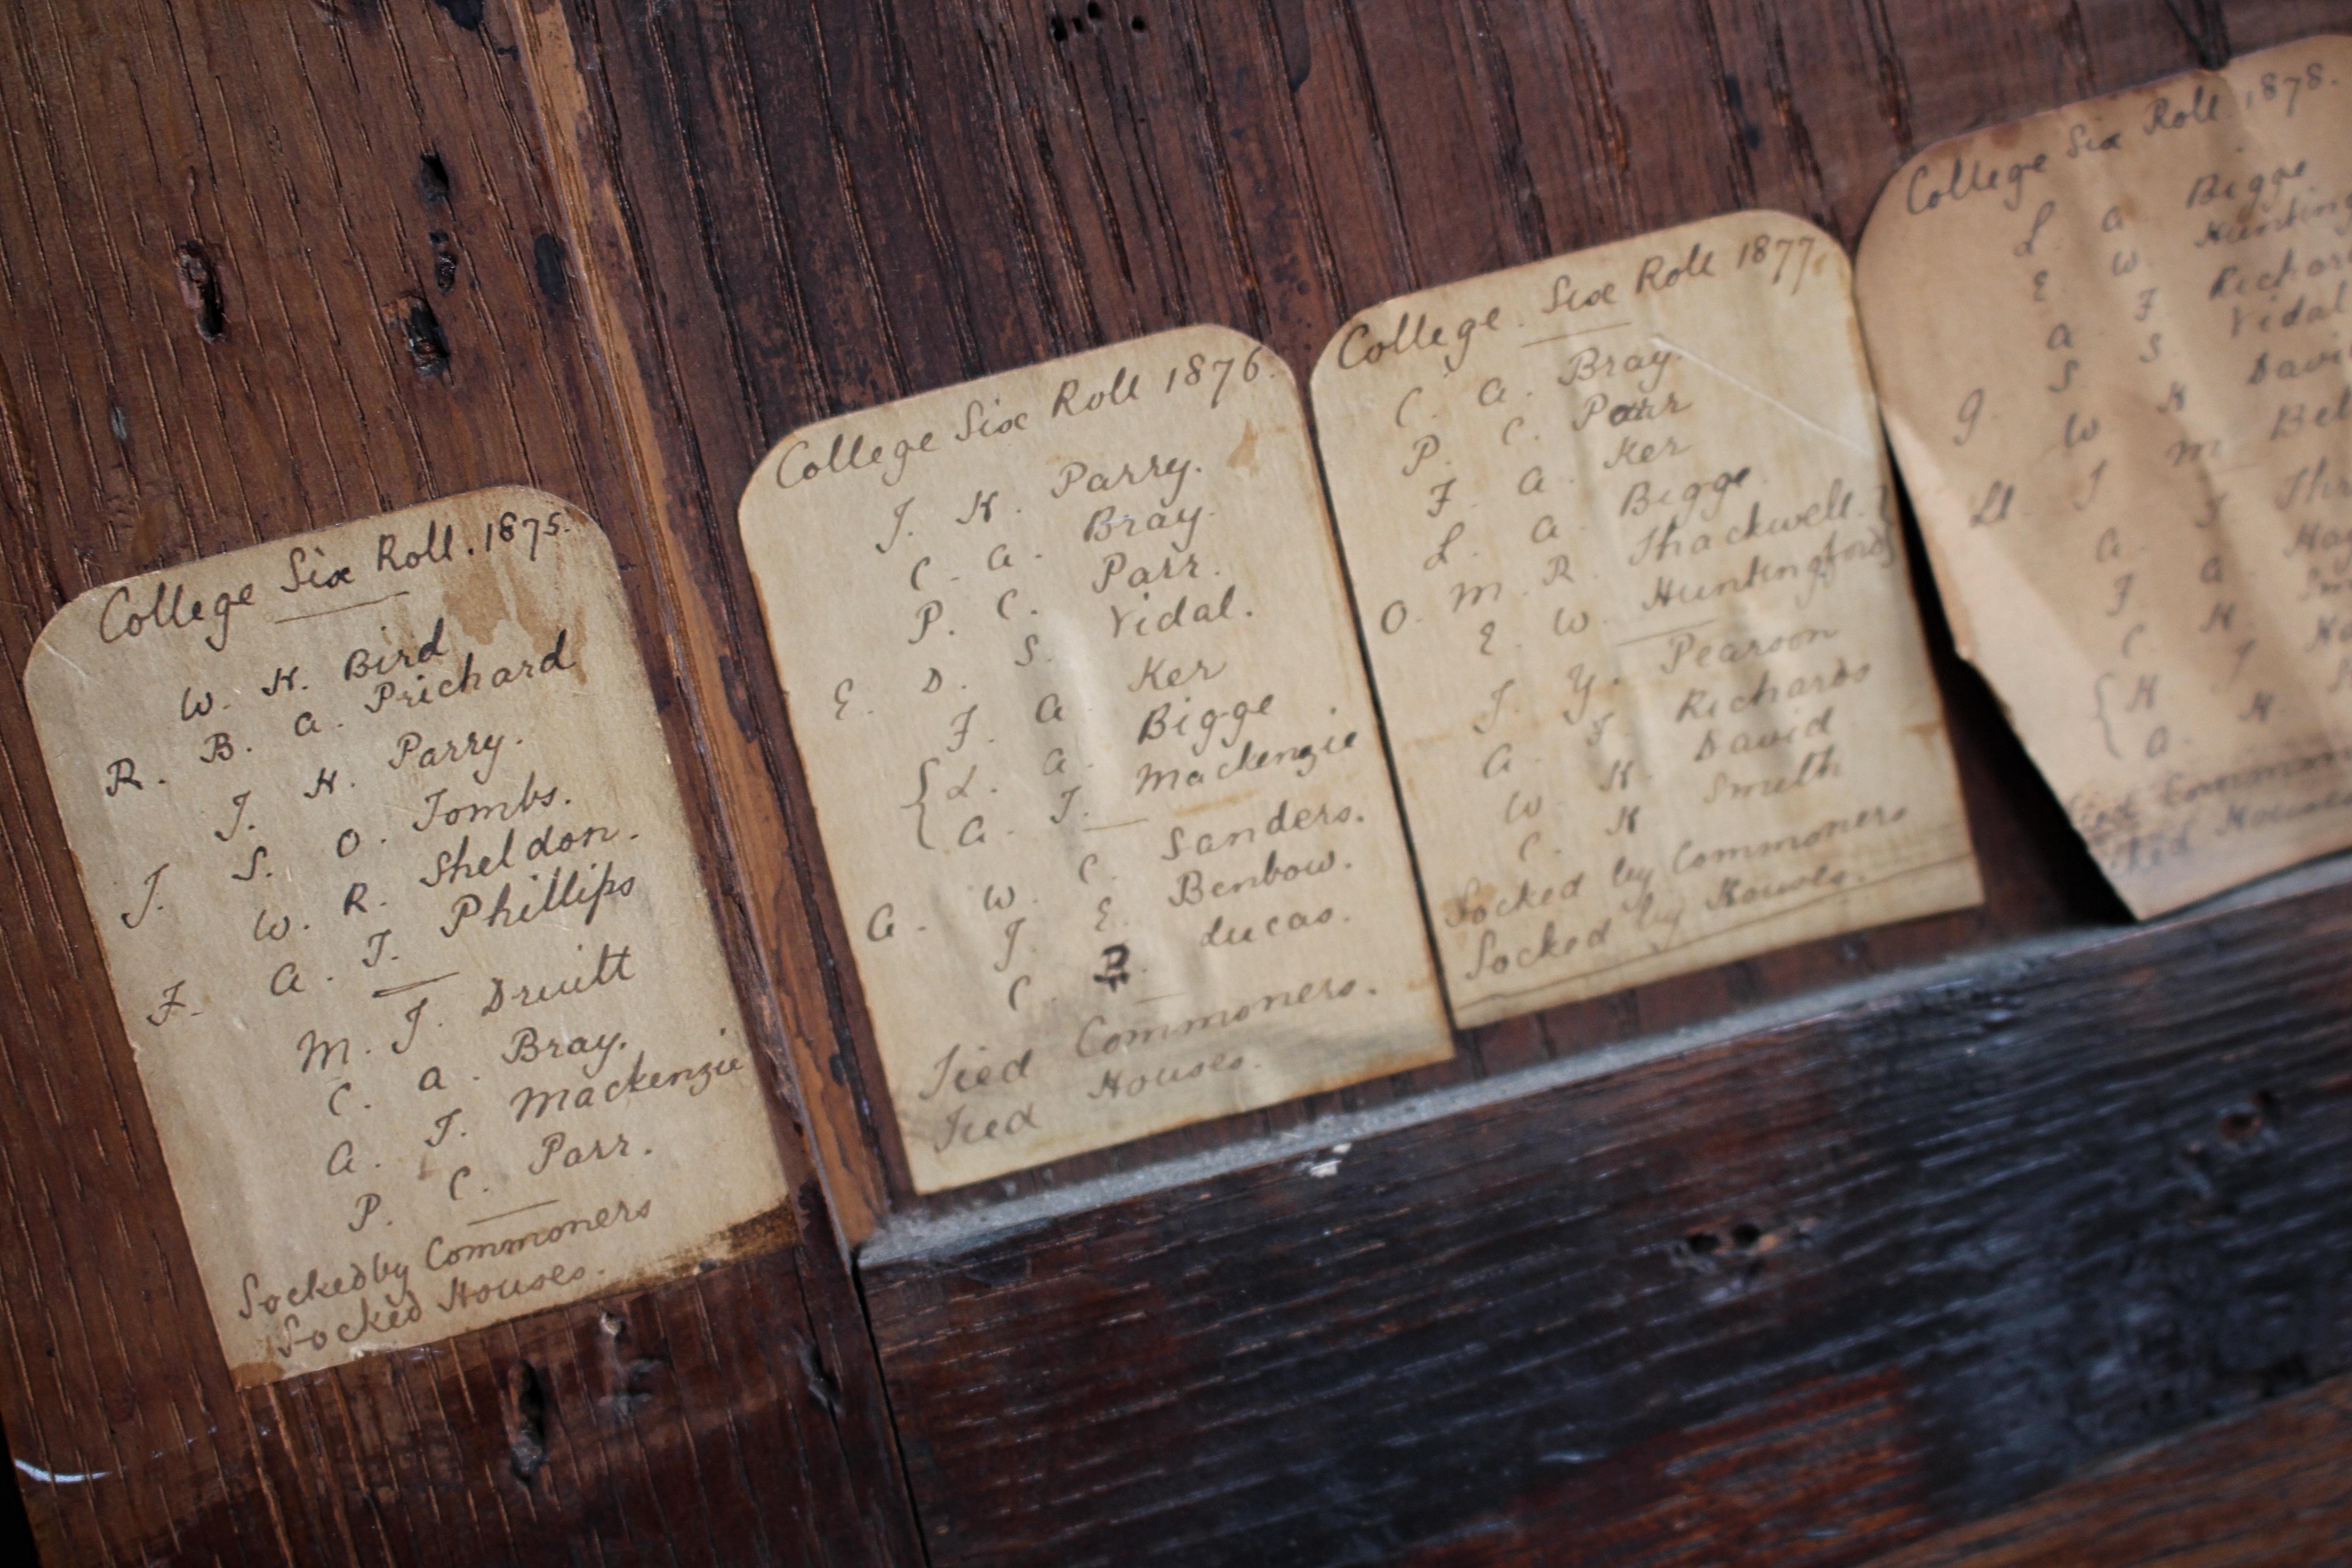 College Six Roll. 1875.
W. H. Bird
R. B. A. Prichard
J. H. Parry.
J. S. O. Tombs.
W. R. Sheldon.
F. A. T. Phillips
M. J. Druitt
C. A. Bray.
A. J. Mackenzie
P. C. Parr.
Socked by Commoners
Socked Houses.
College Six Roll 1876.
J. H. Parry.
C. A. Bray.
P. C. Parr.
E. D. S. Vidal.
F. A. Ker
L. A. Bigge
A. J. Mackenzie
A. W. C. Sanders.
J. E. Benbow.
C. Lucas.
Tied Commoners.
Tied Houses.
College Six Roll 1877.
C. A. Bray.
P. C. Parr
F. A. Ker
L. A. Bigge.
O. M. R. Thackwell.
E. W. Huntingford
J. Y. Pearson
A. F. Richards
W. H. David
C. H Smith
Socked by Commoners
Socked by Houses.
College Six Roll. 1878.
L. A. Bigge
E. W
A. F
G. S. S Vidal
W H
Ll. J. M
A. J
F. A
C. H.
H J
A. H